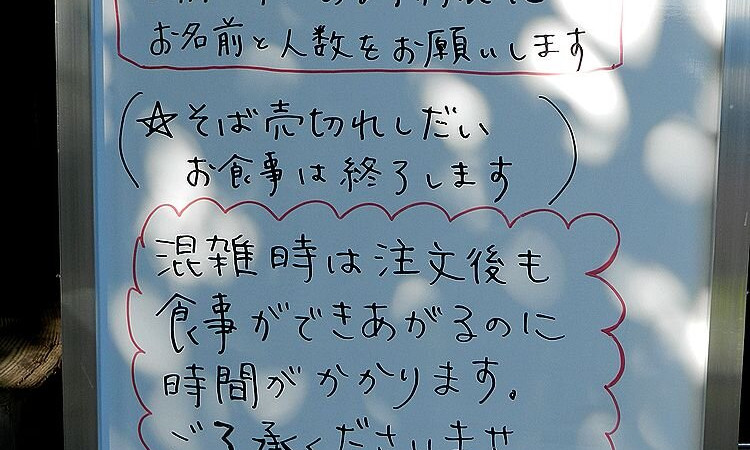 お名前と人数をお願いします
(☆そば売切れしだい
お食事は終了します)
混雑時は注文後も
食事ができあがるのに
時間がかかります。
ご了承くださいませ